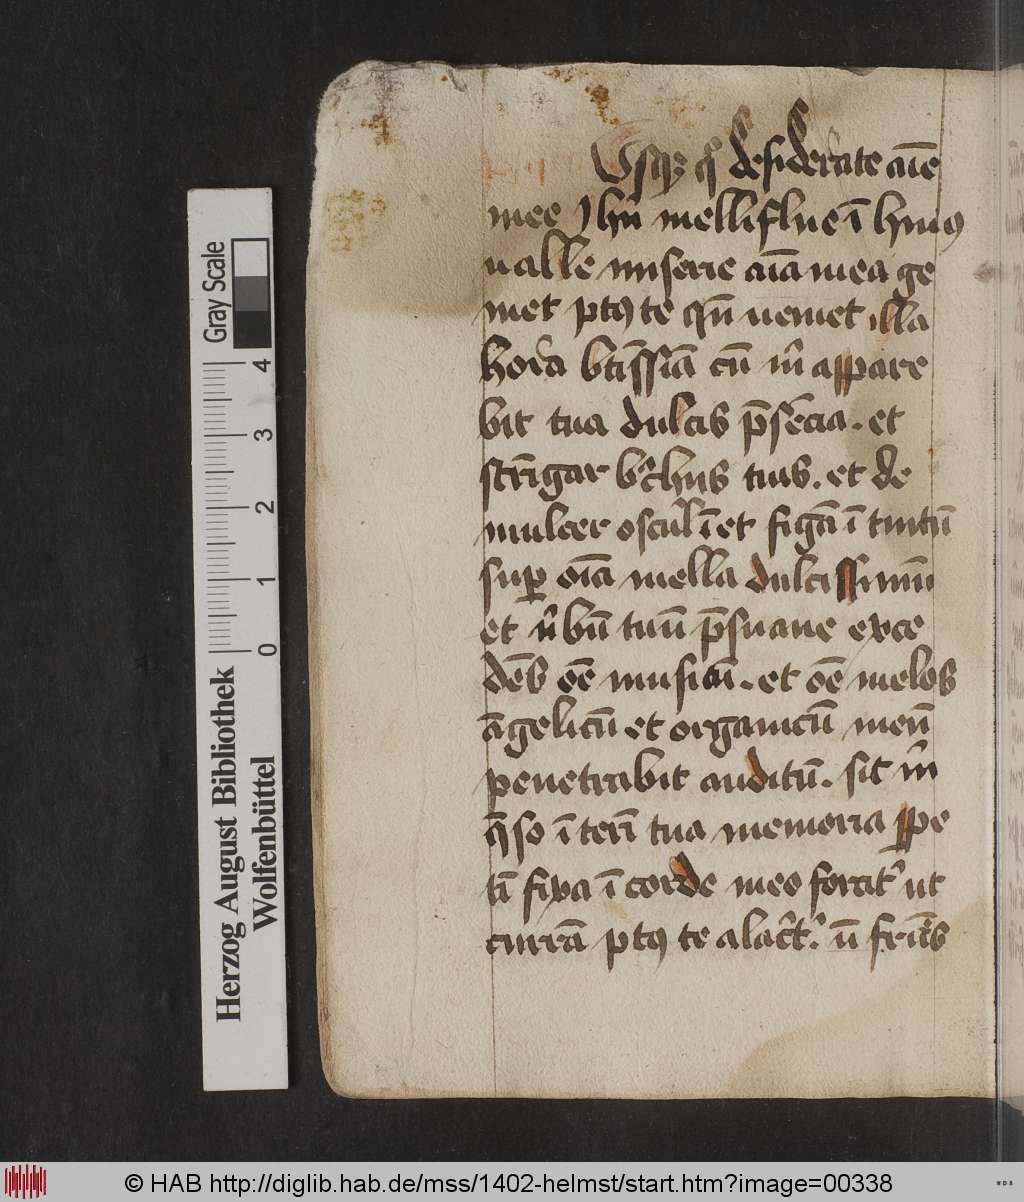 Vsqz q̊ desiderate aīe
mee Jhū melliflue ī huiꝰ
ualle miserie aīa mea ge
met ptꝰ te qn̄ ueniet illa
hora btīssīa cū m̄ appare
bit tua dulcis p̄sēcia . et
strīgar bͣchijs tuis . et de
mulcer oscul̕ et figā ī tuitū
suꝑ oīa mella dulcissimū
et ūbū tuū p̄suaue exce
dēs oē musicū . et oē melos
āgelicū et organicū meū
penetrabit auditū . sit m̄
q̄so ī terī tua memoria ꝑpe
ti fixa ī corde meo forcit᷑ ut
currā ptꝰ te alacr̄t᷑ . ū
Gray Scale
4
3
2
1
0
Herzog August Bibliothek
Wolfenbüttel
© HAB http://diglib.hab.de/mss/1402-helmst/start.htm?image=00338